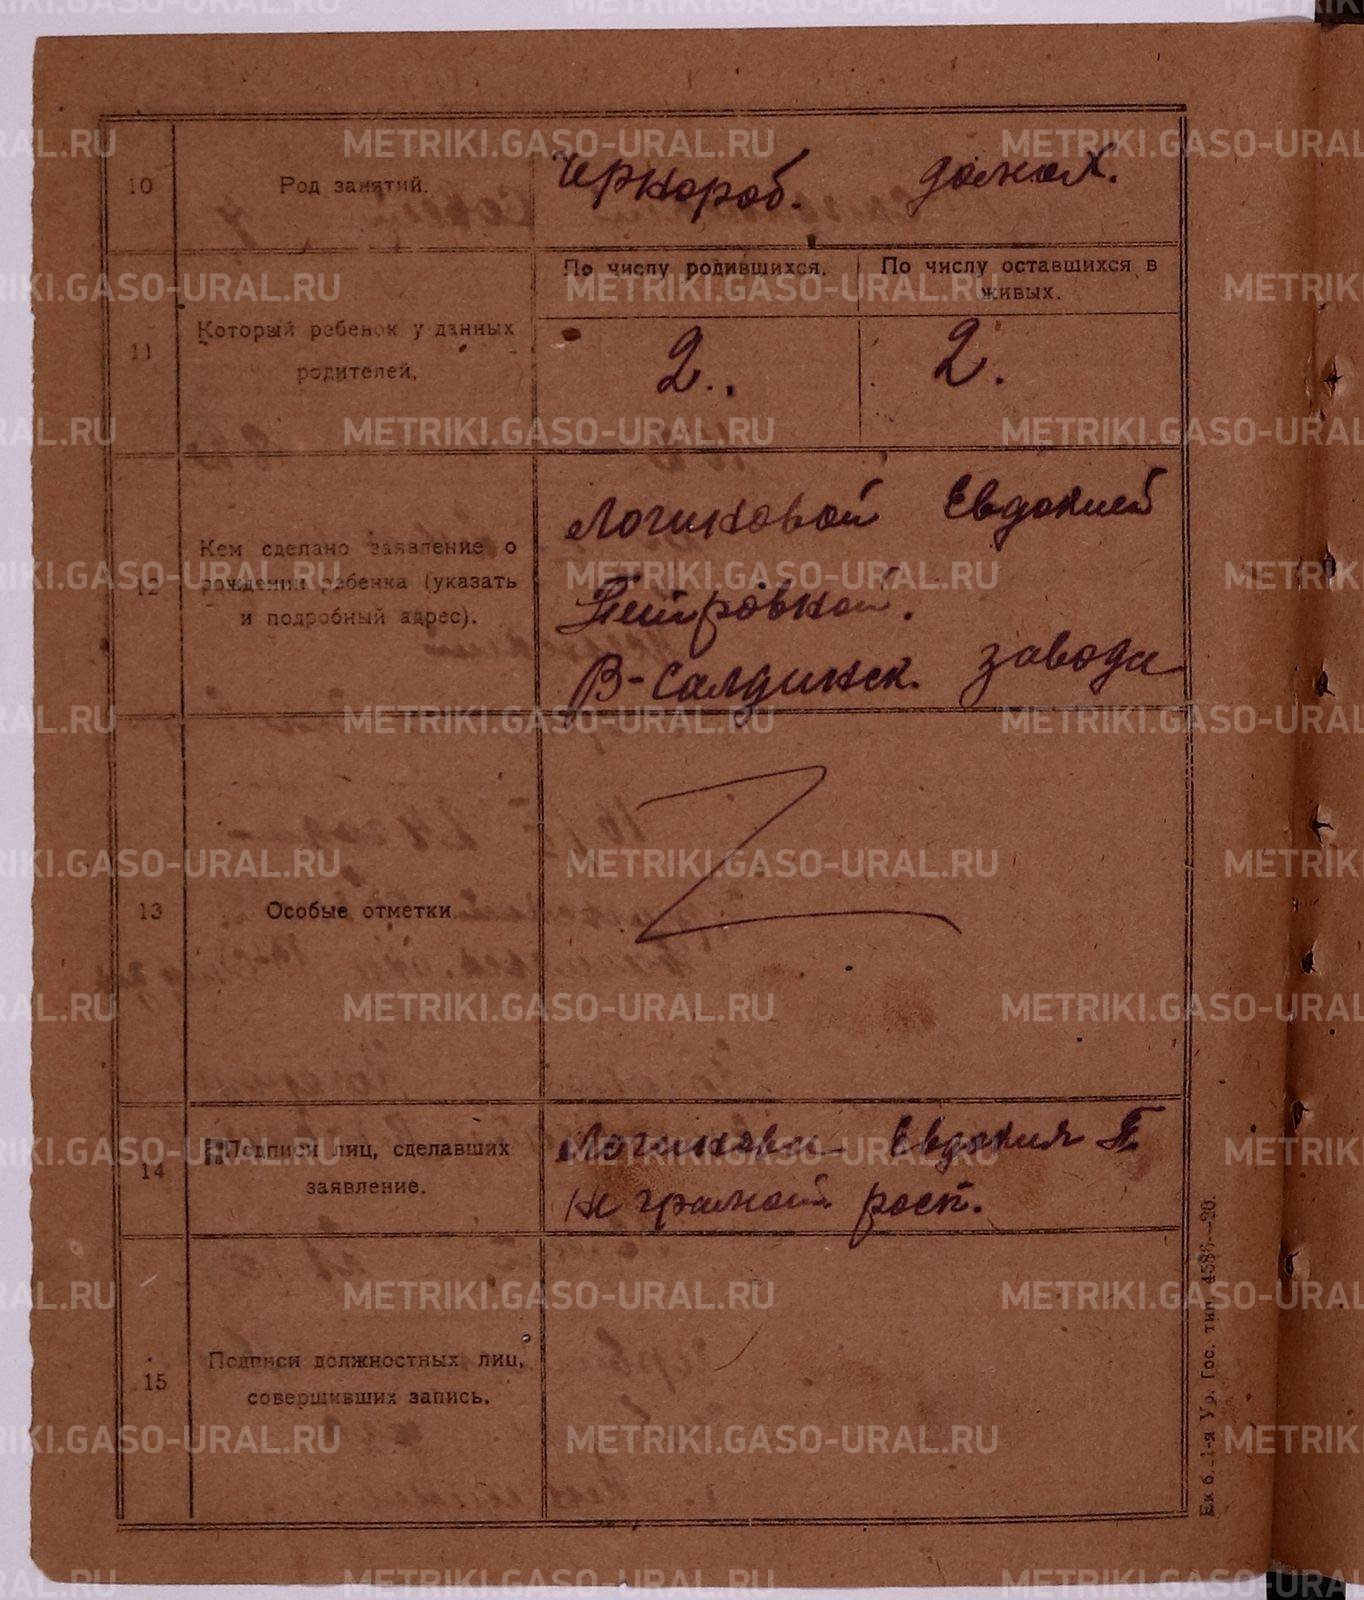 10
Род занятий.
Чернораб. домох.
11
Который ребенок у данных
родителей.
По числу родившихся.
По числу оставшихся в
живых.
2.
2.
12
Кем сделано заявление о
рождении ребенка (указать
и подробный адрес).
Логиновой Евдокией
Петровной.
В-Салдинск. завода
13
Особые отметки.
14
Подписи лиц, сделавших
заявление.
Логинова Евдокия П.
не грамот. росп.
15
Подписи должностных лиц,
совершивших запись.
Ек б. 1-я Ур. Гос. тип. 4586—20.
METRIKI.GASO-URAL.RU